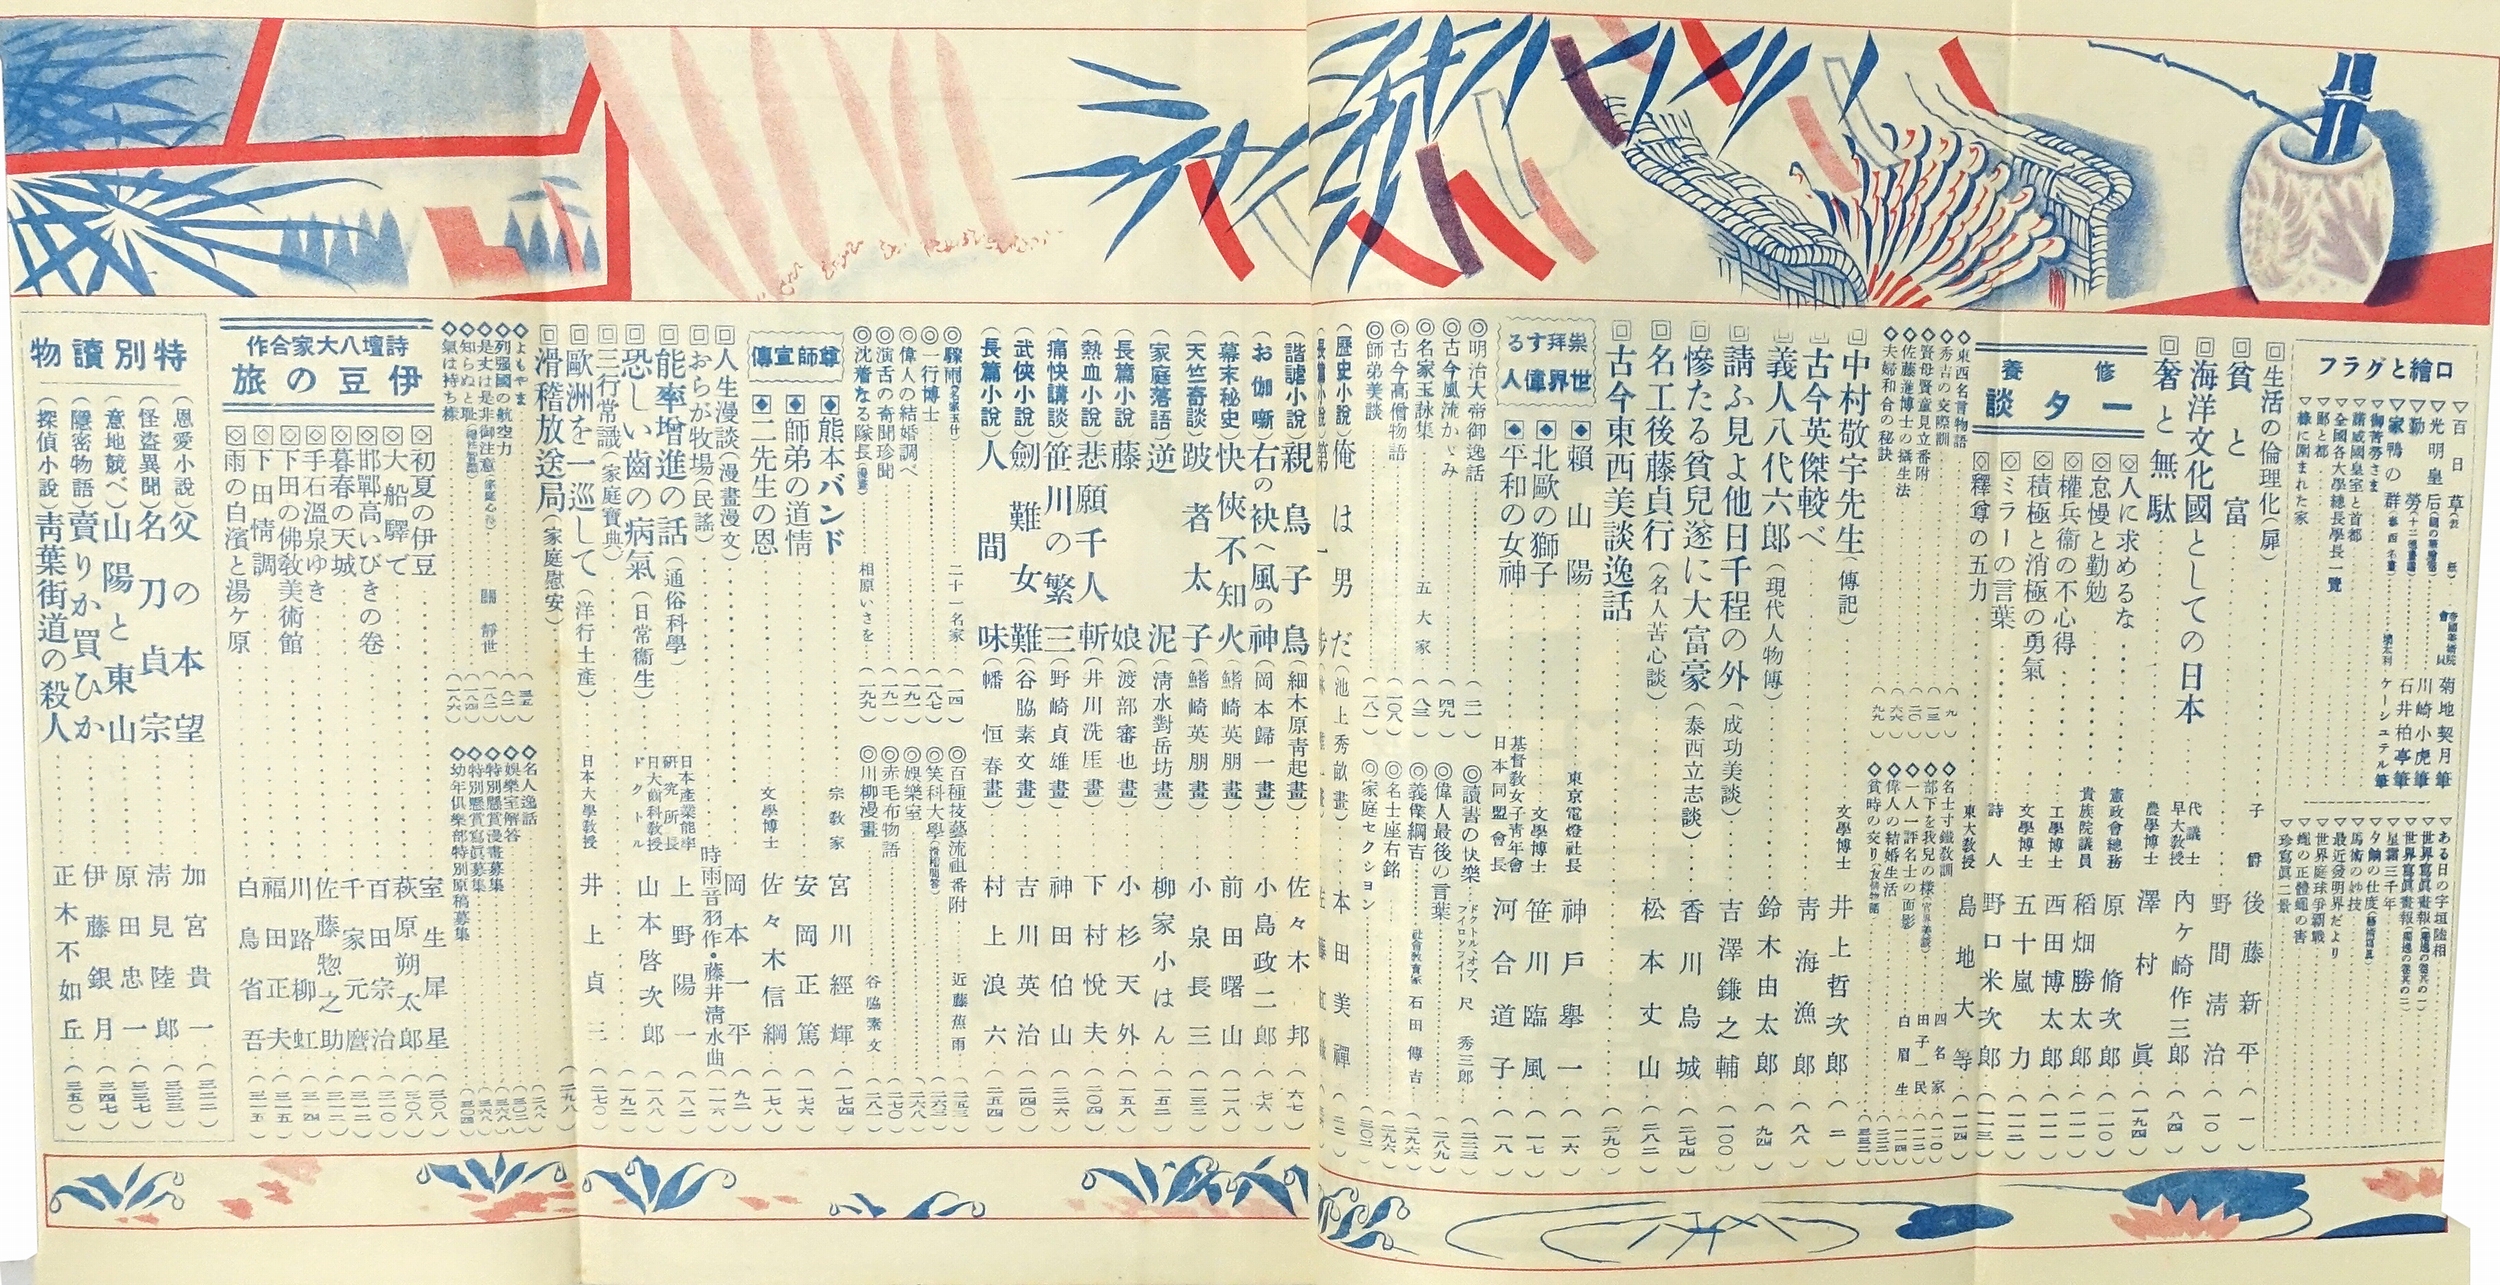 口繪とグラフ
▽百日草(表紙)…帝國美術院會員 菊地契月筆
▽光明皇后…川崎小虎筆
▽勤勞…石井柏亭筆
▽家鴨の群…ケーシュテル筆
▽御苦勞さま
▽諾威國皇室と首都
▽全國各大學總長學長一覽
▽鄙と都
▽ある日の宇垣陸相
▽星霜三千年
▽馬術の妙技
▽最近發明界だより
▽世界庭球爭覇戰
▽蠅の正體蠅の害
▽珍寫眞二景
回生活の倫理化(扉)…子爵 後藤新平(一)
回貧と富…野間清治(一〇)
回海洋文化國としての日本…代議士 早大教授 內ケ崎作三郎(八四)
回奢と無駄…農學博士 澤村眞(一九四)
修養一夕談
回人に求めるな…憲政會總務 原脩次郎(一一〇)
回怠慢と勤勉…貴族院議員 稻畑勝太郎(一一一)
回權兵衞の不心得…工學博士 西田博太郎(一一一)
回積極と消極の勇氣…文學博士 五十嵐力(一一二)
回ミラーの言葉…詩人 野口米次郎(一一三)
回釋尊の五力…東大教授 島地大等(一一四)
◇東西名言物語…(九)
◇秀吉の交際訓…(一三)
◇賢母賢童見立番附…(二〇)
◇佐藤進博士の攝生法…(六六)
◇夫婦和合の秘訣…(九九)
◇名士寸鐵敎訓…四名家(一一〇)
◇部下を我兒の樣…田子一民
◇一人一評名士の面影…白眉生(一一四)
◇偉人の結婚生活
◇貧時の交り
回中村敬宇先生(傳記)…文學博士 井上哲次郎(二)
回古今英傑較べ…靑海漁郎(八八)
回義人八代六郎(現代人物傳)…鈴木由太郎(九四)
回請ふ見よ他日千程の外(成功美談)…吉澤鎌之輔(一〇〇)
回慘たる貧兒遂に大富豪(泰西立志談)…香川烏城(二七四)
回名工後藤貞行(名人苦心談)…松本丈山(二八二)
回古今東西美談逸話…(二九〇)
崇拜する世界偉人
◆賴山陽…東京電燈社長 神戶擧一(一六)
◆北歐の獅子…文學博士 笹川臨風(一七)
◆平和の女神…基督敎女子靑年會日本同盟會長 河合道子(一八)
◎明治大帝御逸話…(二一)
◎古今風流かゞみ…(四九)
◎名家玉詠集…五大家(八三)
◎古今高僧物語…(一〇八)
◎師弟美談…(一八一)
◎讀書の快樂…ドクトル・オブ・フイロソフイー 尺秀三郎(二三三)
◎偉人最後の言葉…(二八九)
◎義僕綱吉…社會敎育家 石田傳吉(二九六)
◎名士座右銘…(二九六)
◎家庭セクション…(三〇一)
(歷史小說)俺は一男だ(池上秀畝畫)…本田美禪
(諧謔小說)親鳥子鳥(細木原靑起畫)…佐々木邦(六七)
(お伽噺)右の袂へ風の神(岡本歸一畫)…小島政二郎(七六)
(幕末秘史)快俠不知火(鰭崎英朋畫)…前田曙山(一一八)
(天竺奇談)跛者太子(鰭崎英朋畫)…小泉長三(一三二)
(家庭落語)逆泥(淸水對岳坊畫)…柳家小はん(一五二)
(長篇小說)藤娘(渡部審也畫)…小杉天外(一五八)
(熱血小說)悲願千人斬(井川洗厓畫)…下村悅夫(二〇四)
(痛快講談)笹川の繁三(野崎貞雄畫)…神田伯山(二二六)
(武俠小說)劍難女難(谷脇素文畫)…吉川英治(二四〇)
(長篇小說)人間味(幡恒春畫)…村上浪六(二五四)
◎驟雨…二十一名家(一四)
◎一行博士…(一八七)
◎偉人の結婚調べ…(一九一)
◎演舌の奇聞珍聞…(一九一)
◎沈着なる隊長…相原いさを(一九九)
◎百種技藝流祖番附…近藤蕉雨(二五三)
◎笑科大學…(二六三)
◎娛樂室…(二六八)
◎赤毛布物語…(二七〇)
◎川柳漫畫…谷脇素文(二八一)
尊師宣傳
◆熊本バンド…宗敎家 宮川經輝(一七四)
◆師弟の道情…安岡正篤(一七六)
◆二先生の恩…文學博士 佐々木信綱(一七八)
回人生漫談(漫畫漫文)…岡本一平(九二)
回おらが牧場(民謠)…時雨音羽作・藤井淸水曲(一一六)
回能率增進の話(通俗科學)…日本產業能率硏究所長 上野陽一(一八二)
回恐しい齒の病氣(日常衞生)…日大齒科敎授ドクトル 山本啓次郎(一八八)
回三行常識(家庭寶典)…(一九二)
回歐洲を一巡して(洋行土產)…日本大學敎授 井上貞三(二七〇)
回滑稽放送局(家庭慰安)…(二九八)
◇よもやま…(三五)
◇列强國の航空力…(八一)
◇是丈は是非御注意…關靜世(一八二)
◇知らぬと耻…(一八四)
◇氣は持ち樣…(一八六)
◇名人逸話…(二八八)
◇娛樂室解答…(三〇二)
◇特別懸賞漫畫募集
◇特別懸賞寫眞募集
◇幼年俱樂部特別原稿募集
詩壇八大家合作
伊豆の旅
回初夏の伊豆…室生犀星(三〇八)
回大船驛で…萩原朔太郎(三〇八)
回邯鄲高いびきの卷…百田宗治(三一〇)
回暮春の天城…千家元麿(三一二)
回手石溫泉ゆき…佐藤惣之助(三一二)
回下田の佛敎美術館…川路柳虹(三一四)
回下田情調…福田正夫(三一五)
回雨の白濱と湯ケ原…白鳥省吾(三一五)
特別讀物
(恩愛小說)父の本望…加宮貴一(三二二)
(怪盜異聞)名刀貞宗…淸見陸郎(三三三)
(意地競べ)山陽と東山…原田忠一(三三七)
(隱密物語)賣りか買ひか…伊藤銀月(三四七)
(探偵小說)靑葉街道の殺人…正木不如丘(三五〇)